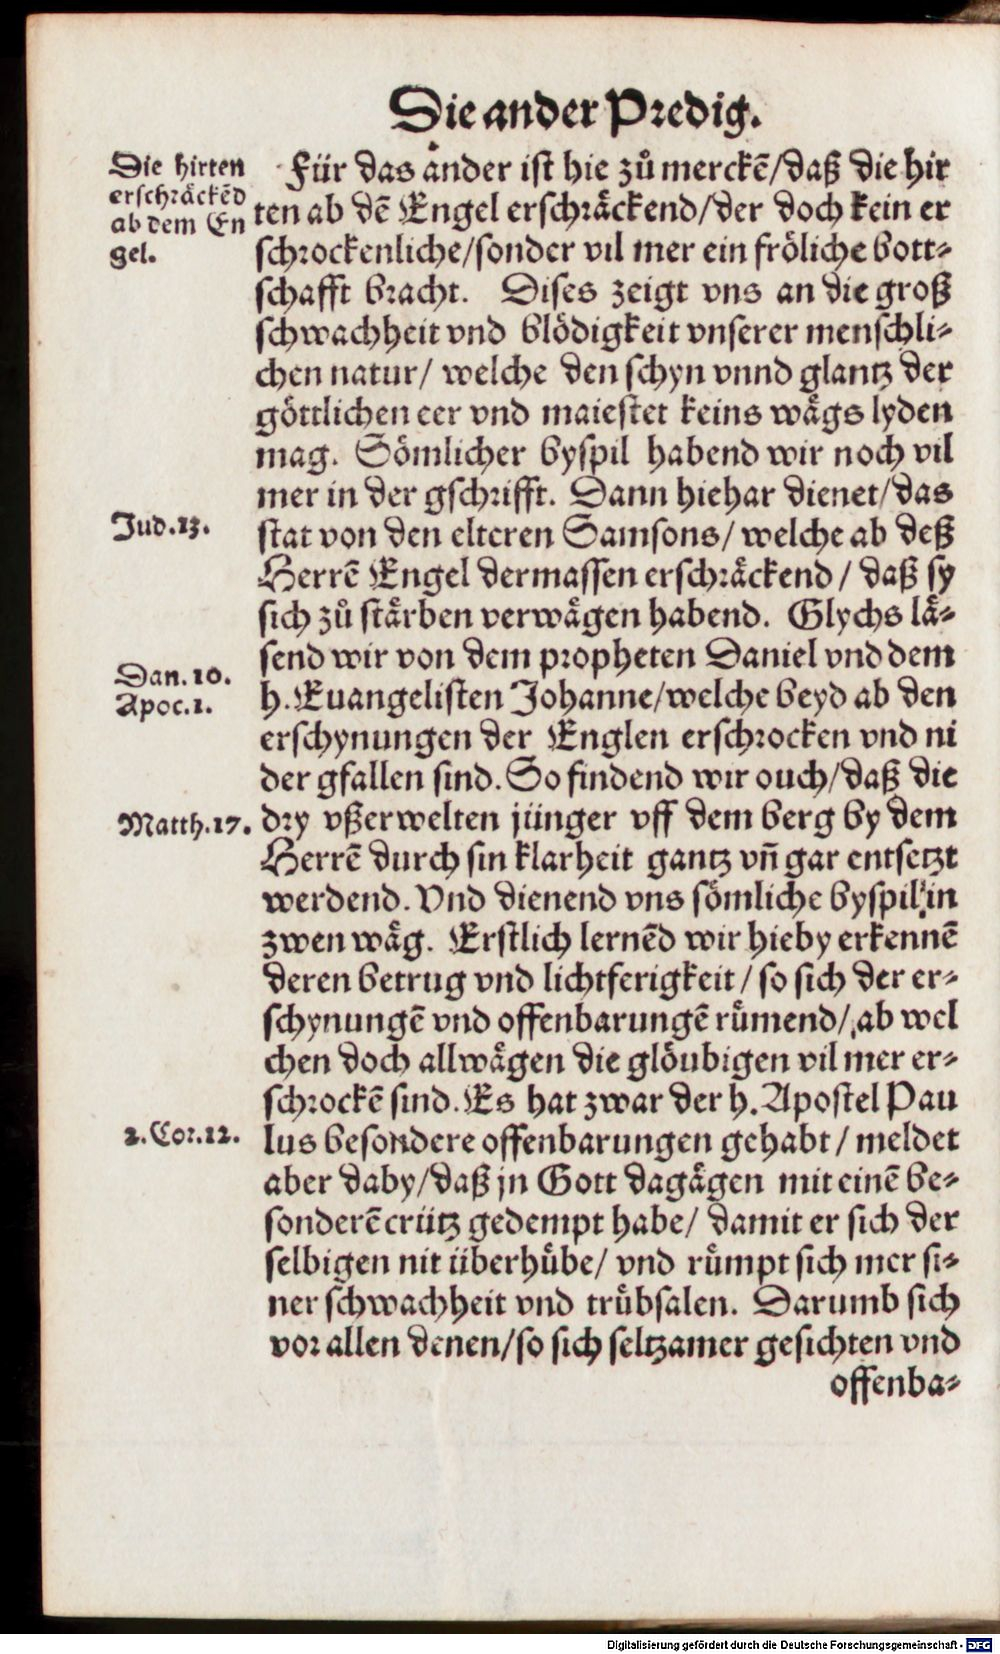 Die ander Predig.
Die hirten
erschräckēd
ab dem En
gel.
Für das ander ist hie zů merckē/daß die hir
ten ab dē Engel erschräckend/der doch kein er
schrockenliche/sonder vil mer ein fröliche bott-
schafft bracht. Dises zeigt vns an die groß
schwachheit vnd blödigkeit vnserer menschli-
chen natur/ welche den schyn vnnd glantz der
göttlichen eer vnd maiestet keins wägs lyden
mag. Sömlicher byspil habend wir noch vil
mer in der gschrifft. Dann hiehar dienet/das
Jud.13.
stat von den elteren Samsons/ welche ab deß
Herrē Engel dermassen erschräckend/ daß sy
sich zů stärben verwägen habend. Glychs lä-
send wir von dem propheten Daniel vnd dem
Dan.10.
Apoc.1.
h.Euangelisten Johanne/welche beyd ab den
erschynungen der Englen erschrocken vnd ni
der gfallen sind. So findend wir ouch/daß die
Matth.17.
dry vßerwelten jünger vff dem berg by dem
Herrē durch sin klarheit gantz vñ gar entsetzt
werdend. Vnd dienend vns sömliche byspil in
zwen wäg. Erstlich lernēd wir hieby erkennē
deren betrug vnd lichtferigkeit/ so sich der er-
schynungē vnd offenbarungē rümend/ ab wel
chen doch allwägen die glöubigen vil mer er-
schrockē sind. Es hat zwar der h. Apostel Pau
2.Cor.12.
lus besondere offenbarungen gehabt/ meldet
aber daby/daß jn Gott dagägen mit einē be-
sonderē crütz gedempt habe/ damit er sich der
selbigen nit überhübe/ vnd rümpt sich mer si-
ner schwachheit vnd trübsalen. Darumb sich
vor allen denen/so sich seltzamer gesichten vnd
offenba-
Digitalisierung gefördert durch die Deutsche Forschungsgemeinschaft - DFG